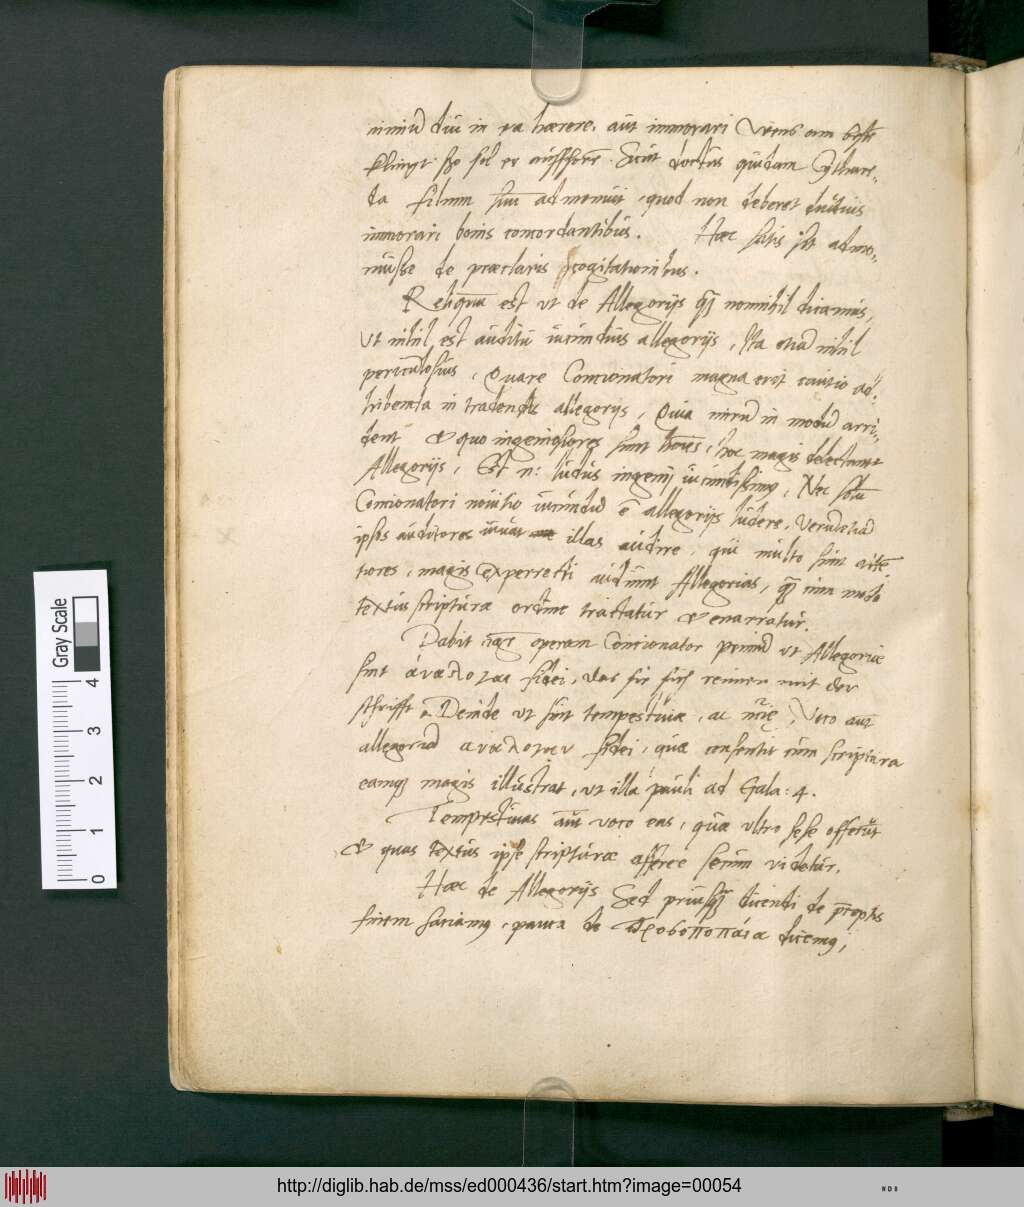 nimiũ diu in ea haerere, aut immorari Wens am beste
klingt so sol er auffhoren. Sicut doctus quidam Cythare-
da filium suu admonuit, quod non deberet diutius
immorari bonis concordantibus. Haec satis sit admo-
nuisse de praeclaris cogitationibus.
Reliquũ est ut de Allegorijs quoq nonnihil dicamus,
Ut nihil est auditu iucundius allegorijs, Ita etiã nihil
periculosius, Quare Concionatori magna erit cautio ad-
hibenda in tradendis allegorijs, Quia mirũ in modũ arri-
dent et quo ingeniosiores sunt hoies, hoc magis delectantur
Allegorijs, Est n: ludus ingenij iucundissimus, Nec solũ
Concionatori novitio iucundũ ẽ allegorijs ludere, verũetiã
ipsos auditores iuvat illas audire, qui multo sunt attẽ-
tiores, magis experrecti audiunt Allegorias, quã cum nudo
textus scripturae ordine tractatur et enarratur.
Dabit igr operam Concionator primũ ut Allegoriae
sint ἀναλογαι fidei, das sie sich reimen mit der
schrifft. Deinde ut sint tempestivae, ac Voco aut
allegoriã αναλογαν fidei, quae consentit cum scriptura
eamq magis illustrat, ut illa pauli ad Gala: 4.
Tempestivas aut voco eas, quae ultro sese offerũt
et quas textus ipse scripturae afferre secum videtur.
Haec de Allegorijs Sed priusq dicendi de
finem faciamus, pauca de προσοποπαιια dicemus,
0 1 2 3 4
Gray Scale
http://diglib.hab.de/mss/ed000436/start.htm?image=00054